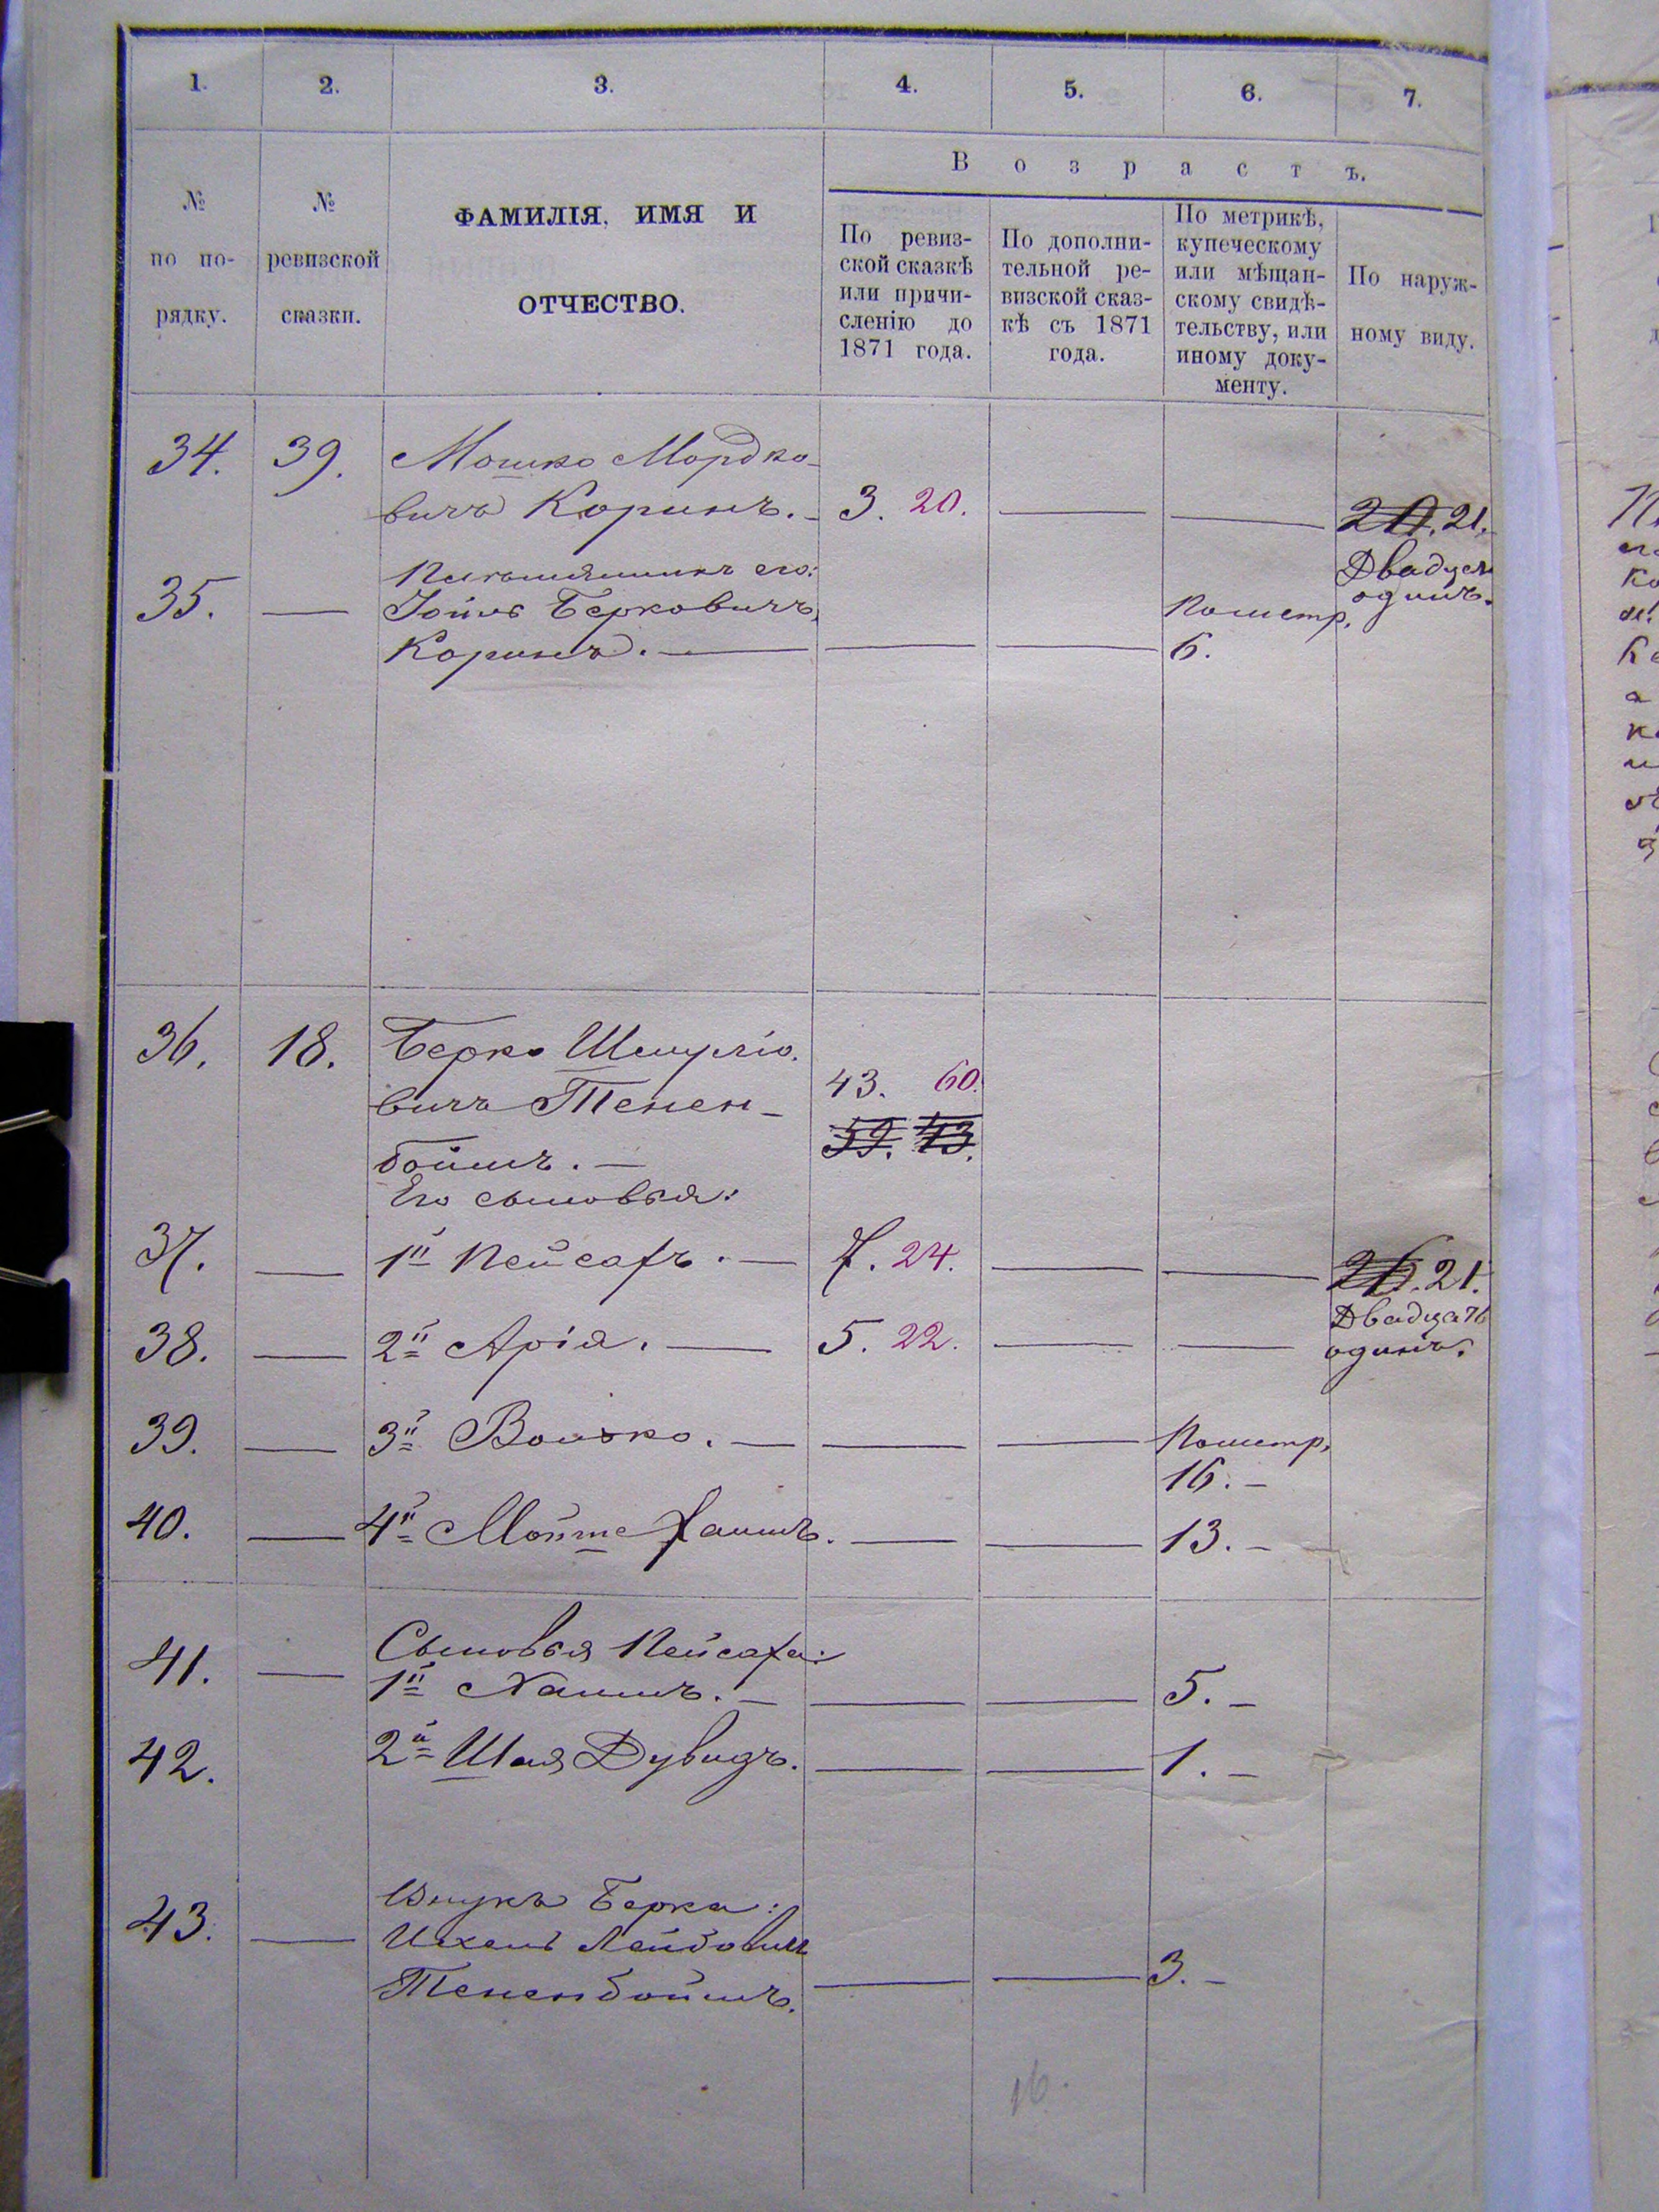 1. 2. 3. 4. 5. 6. 7.
№ по порядку.
№ ревизской сказки.
ФАМИЛІЯ, ИМЯ И
ОТЧЕСТВО.
Возрастъ.
По ревиз-
ской сказкѣ
или причи-
сленію до
1871 года.
По дополни-
тельной ре-
визской сказ-
кѣ съ 1871
года.
По метрикѣ,
купеческому
или мѣщан-
скому свидѣ-
тельству, или
иному доку-
менту.
По наруж-
ному виду.
34. 39. Мошко Мордко-
вичъ Коринъ. 3. 20. 21.
Двадцать
одинъ.
Племянникъ его:
35. Іойнъ Берковичъ
Коринъ. По метр.
6.
36. 18. Берко Шмуліо-
вичъ Тенен- 43. 60.
боймъ. 59. 43.
Его сыновья:
37. 1й Пейсахъ. 7. 24. 21.
Двадцать
одинъ.
38. 2й Арія. 5. 22.
39. 3й Волько. По метр.
16.
40. 4й Мойше Хаимъ. 13.
Сыновья Пейсаха:
41. 1й Хаимъ. 5.
42. 2й Шая Дувидъ. 1.
Внукъ Берка:
43. Ихель Лейбовичъ
Тененбоймъ. 3.
16.